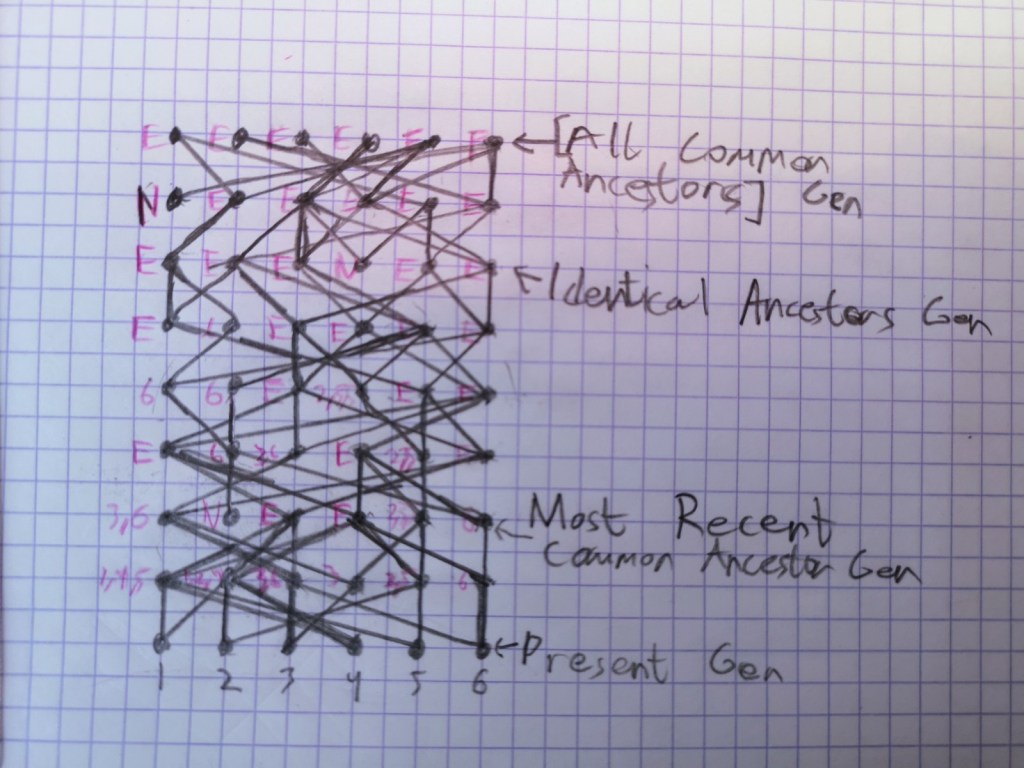 E E E E E E ← [All Common
Ancestors] Gen
N E E E E E
E E E N E E ← Identical Ancestors Gen
E 6 E E E
6 6 E E E
E 6 E
3,6 N E E ← Most Recent
Common Ancestor Gen
1,4,5 3 6
← Present Gen
1 2 3 4 5 6